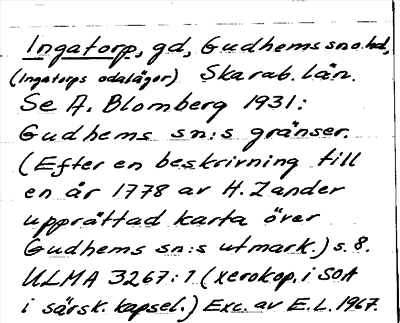 Ingatorp, gd, Gudhems sn o. hd,
(Ingatorps odalägor) Skarab. län.
Se A. Blomberg 1931:
Gudhems sn:s gränser.
(Efter en beskrivning till
en år 1778 av H. Zander
upprättad karta över
Gudhems sn:s utmark.) s. 8.
ULMA 3267:1 (xerokop. i SOA
i särsk. kapsel.) Exc. av E.L. 1967.